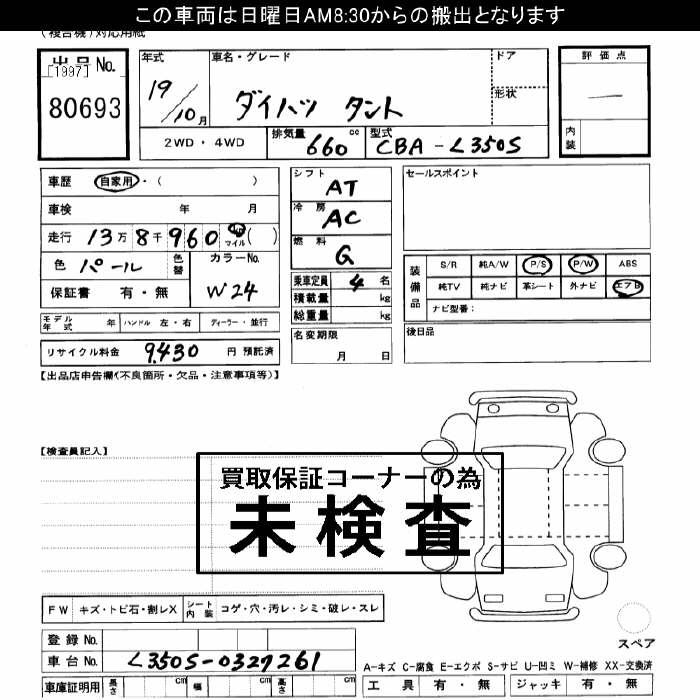 この車両は日曜日AM8:30からの搬出となります
(複合機)対応用紙
出品No.
[1997]
80693
年式 19/10月
車名・グレード ダイハツ タント
ドア
形状
評価点 —
内装
2WD・4WD
排気量 660 cc
型式 CBA-L350S
車歴 自家用・( )
車検 年 月
走行 13万8千960 km マイル ( )
色 パール 色替 カラーNo. W24
保証書 有・無
シフト AT
冷房 AC
燃料 G
乗車定員 4名
積載量 kg
総重量 kg
セールスポイント
装備品
S/R 純A/W P/S P/W ABS
純TV 純ナビ 革シート 外ナビ エアB
ナビ型番:
モデル年式 年 ハンドル 左・右 ディーラー・並行
名変期限 月 日
後日品
リサイクル料金 9,430 円 預託済
【出品店申告欄(不良箇所・欠品・注意事項等)】
【検査員記入】
買取保証コーナーの為
未検査
FW キズ・トビ石・割レX シート内装 コゲ・穴・汚レ・シミ・破レ・スレ
スペア
登録No.
車台No. L350S-0327261
A-キズ C-腐食 E-エクボ S-サビ U-凹ミ W-補修 XX-交換済
車庫証明用 長さ cm 幅 cm 高さ cm
工具 有・無 ジャッキ 有・無